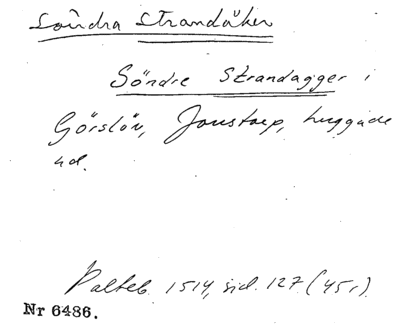 Södra Strandåker
Söndre Strandagger i
Görslöv, Jonstorp, Luggude
hd.
Palteb. 1514, sid. 127 (45r).
Nr 6486.